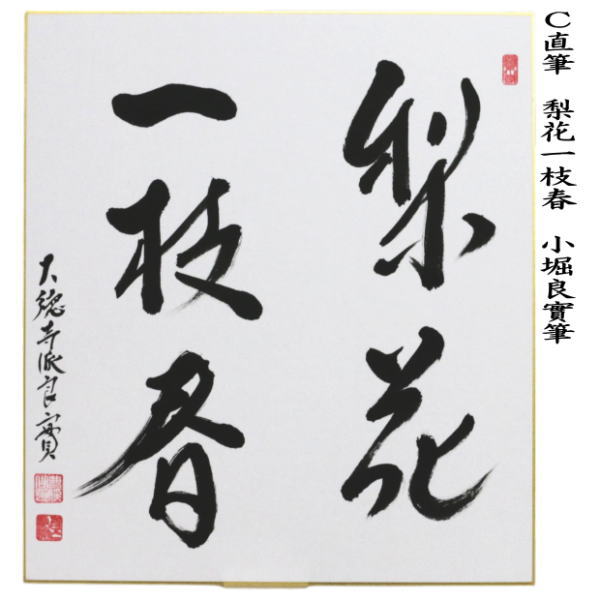 C直筆　梨花一枝春　小堀良實筆
梨花
一枝春
大德寺派良實